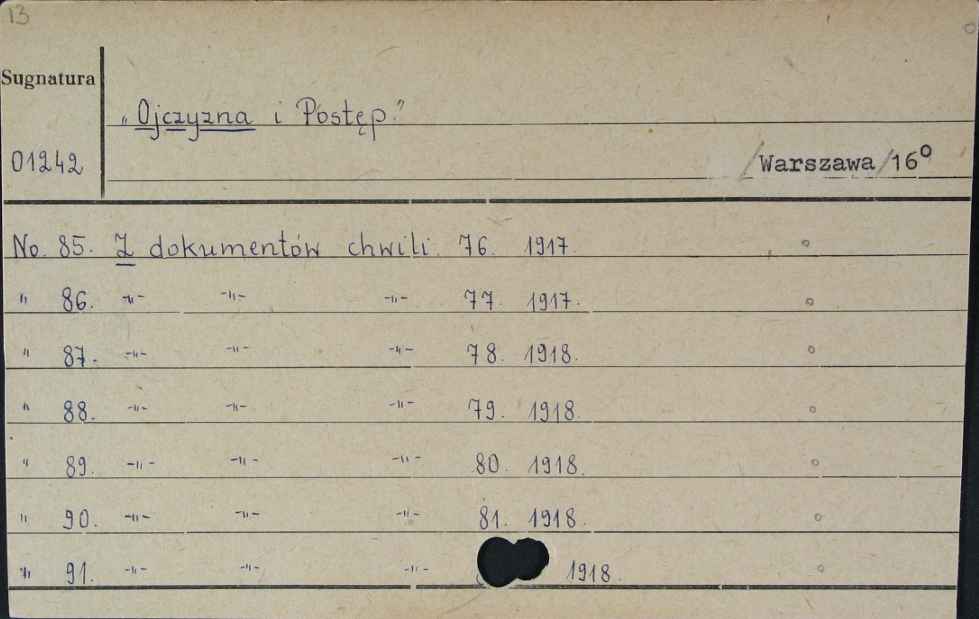 13
Sugnatura
„Ojczyzna i Postęp."
01242
/Warszawa/16°
No. 85. Z dokumentów chwili. 76. 1917.
" 86. -"- -"- -"- 77. 1917.
" 87. -"- -"- -"- 78. 1918.
" 88. -"- -"- -"- 79. 1918.
" 89. -"- -"- -"- 80. 1918.
" 90. -"- -"- -"- 81. 1918.
" 91. -"- -"- -"- 1918.